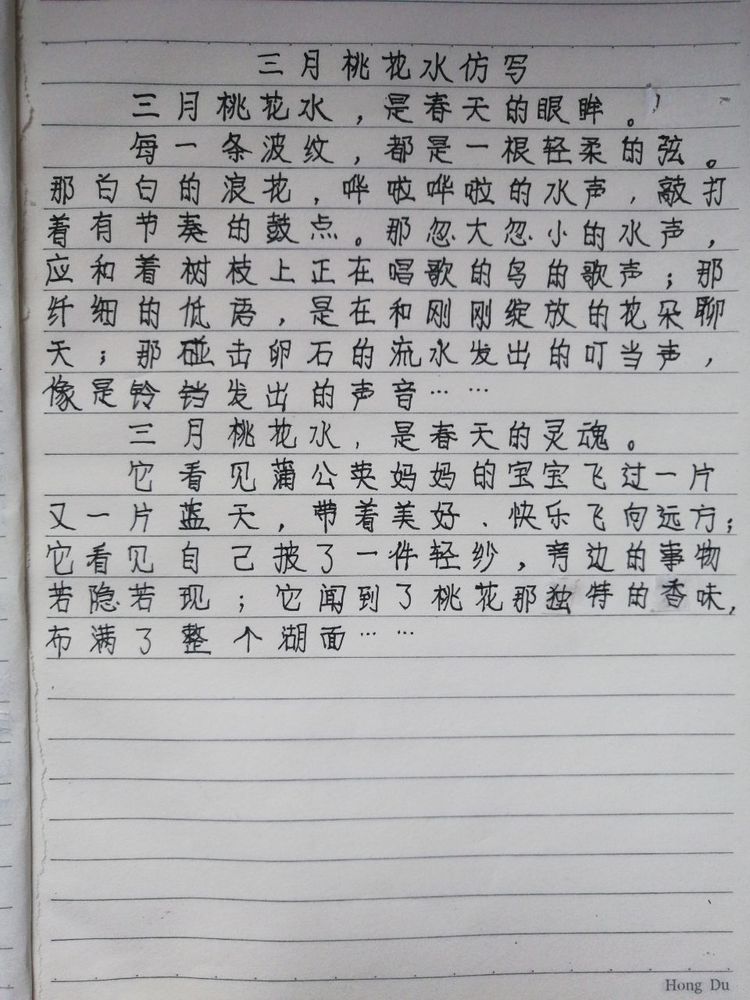 三月桃花水仿写
三月桃花水，是春天的眼眸。
每一条波纹，都是一根轻柔的弦。
那白白的浪花，哗啦哗啦的水声，敲打
着有节奏的鼓点。那忽大忽小的水声，
应和着树枝上正在唱歌的鸟的歌声；那
纤细的低语，是在和刚刚绽放的花朵聊
天；那碰击卵石的流水发出的叮当声，
像是铃铛发出的声音……
三月桃花水，是春天的灵魂。
它看见蒲公英妈妈的宝宝飞过一片
又一片蓝天，带着美好、快乐飞向远方；
它看见自己披了一件轻纱，旁边的事物
若隐若现；它闻到了桃花那独特的香味，
布满了整个湖面……
Hong Du